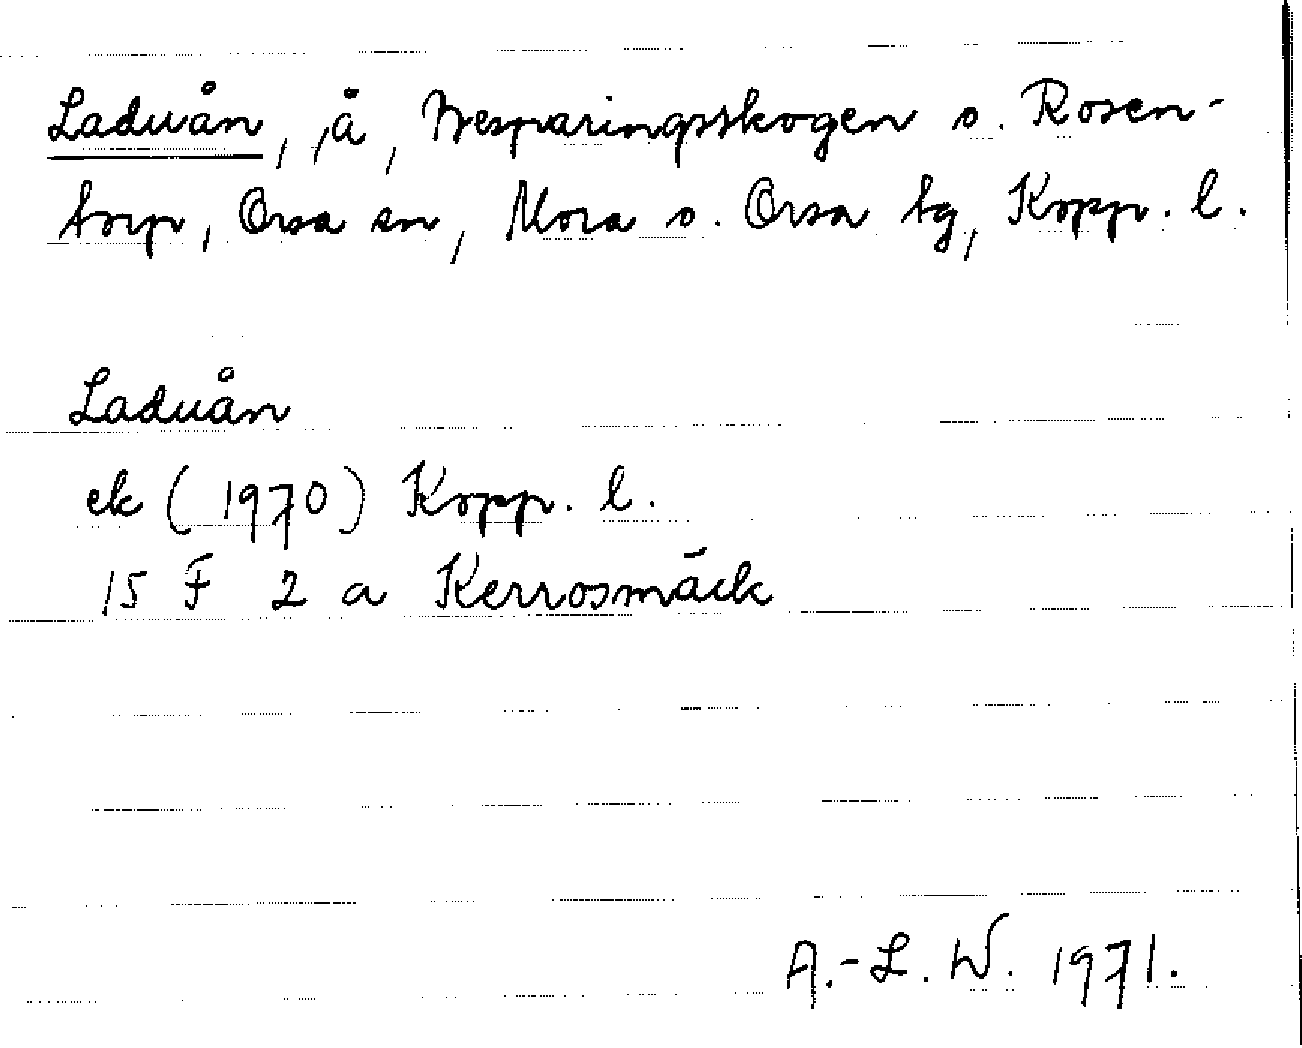 Laduån, å, Besparingsskogen o. Rosen-
torp, Orsa sn, Mora o. Orsa tg, Kopp. l.
Laduån
ek (1970) Kopp. l.
15 F 2 a Kerrosmäck
A.-L. W. 1971.